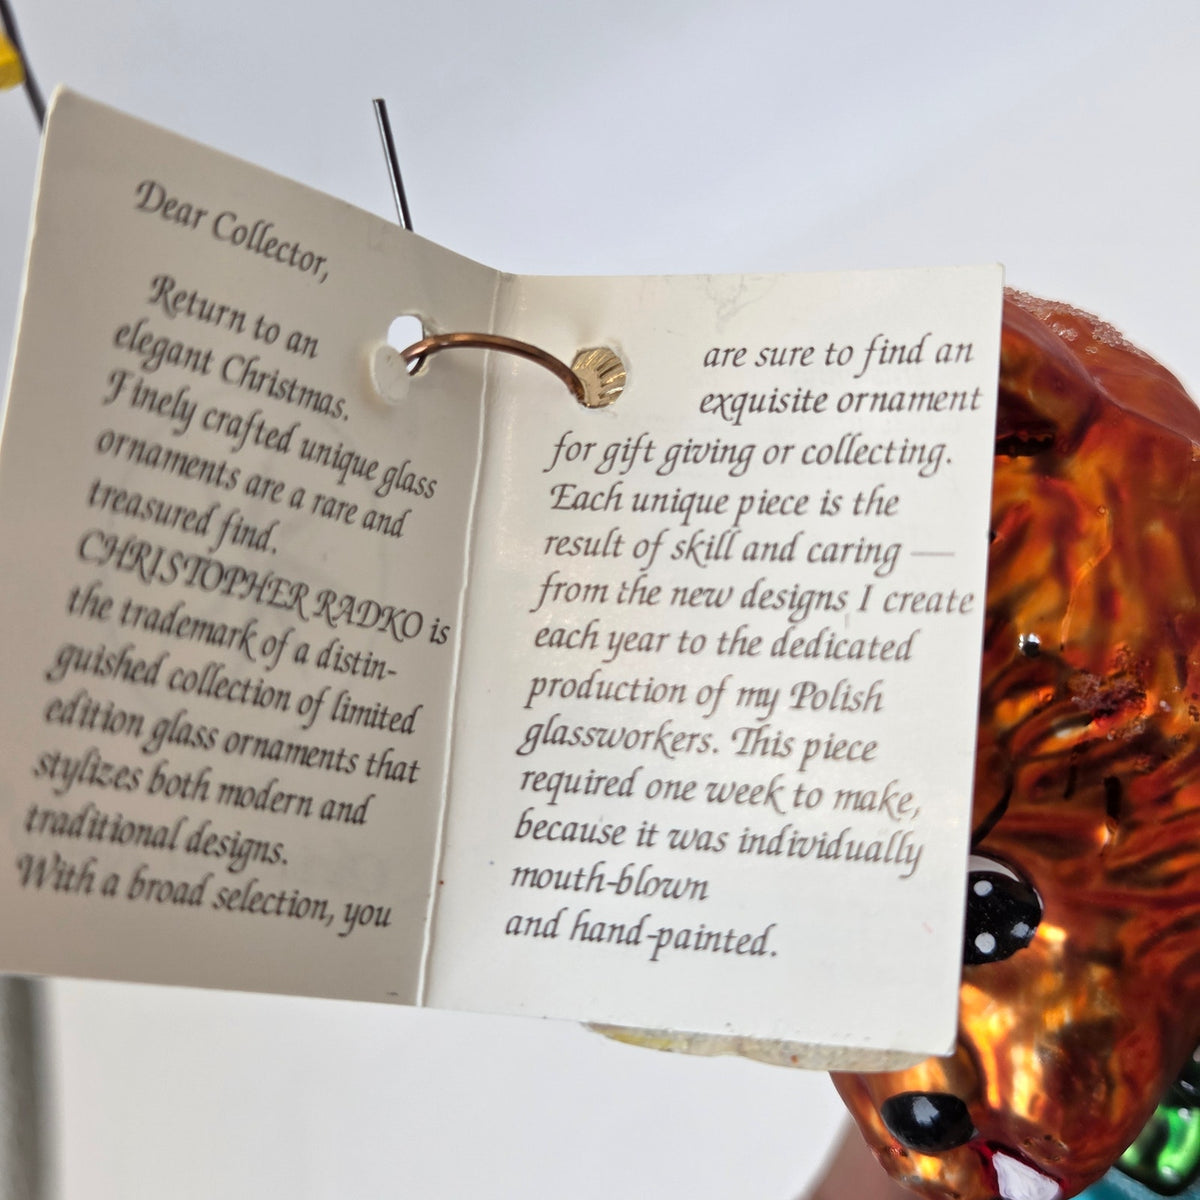 Dear Collector,
Return to an
elegant Christmas.
Finely crafted unique glass
ornaments are a rare and
treasured find.
CHRISTOPHER RADKO is
the trademark of a distin-
guished collection of limited
edition glass ornaments that
stylizes both modern and
traditional designs.
With a broad selection, you
are sure to find an
exquisite ornament
for gift giving or collecting.
Each unique piece is the
result of skill and caring —
from the new designs I create
each year to the dedicated
production of my Polish
glassworkers. This piece
required one week to make,
because it was individually
mouth-blown
and hand-painted.